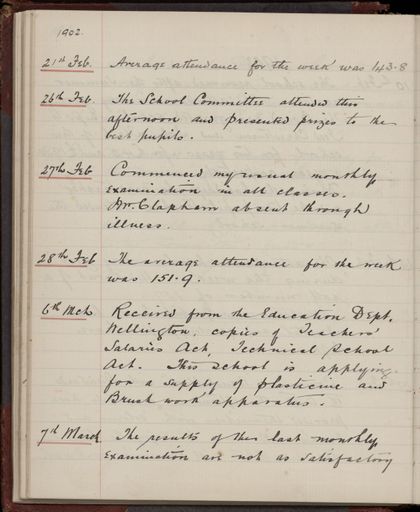 1902.
21st Feb. Average attendance for the week was 143.8
26th Feb. The School Committee attended this
afternoon and presented prizes to the
best pupils.
27th Feb Commenced my usual monthly
examination in all classes.
Mr. Clapham absent through
illness.
28th Feb The average attendance for the week
was 151.9.
6th Mch. Received from the Education Dept.
Wellington, copies of Teachers'
Salaries Act, Technical School
Act. This school is applying
for a supply of plasticine and
Brush work apparatus.
7th March. The results of this last monthly
Examination are not as satisfactory